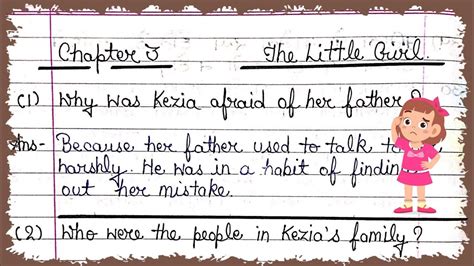 Chapter 3 The Little Girl.
(1) Why was Kezia afraid of her father?
Ans- Because her father used to talk to
harshly. He was in a habit of findin
out her mistake.
(2) Who were the people in Kezia's family?